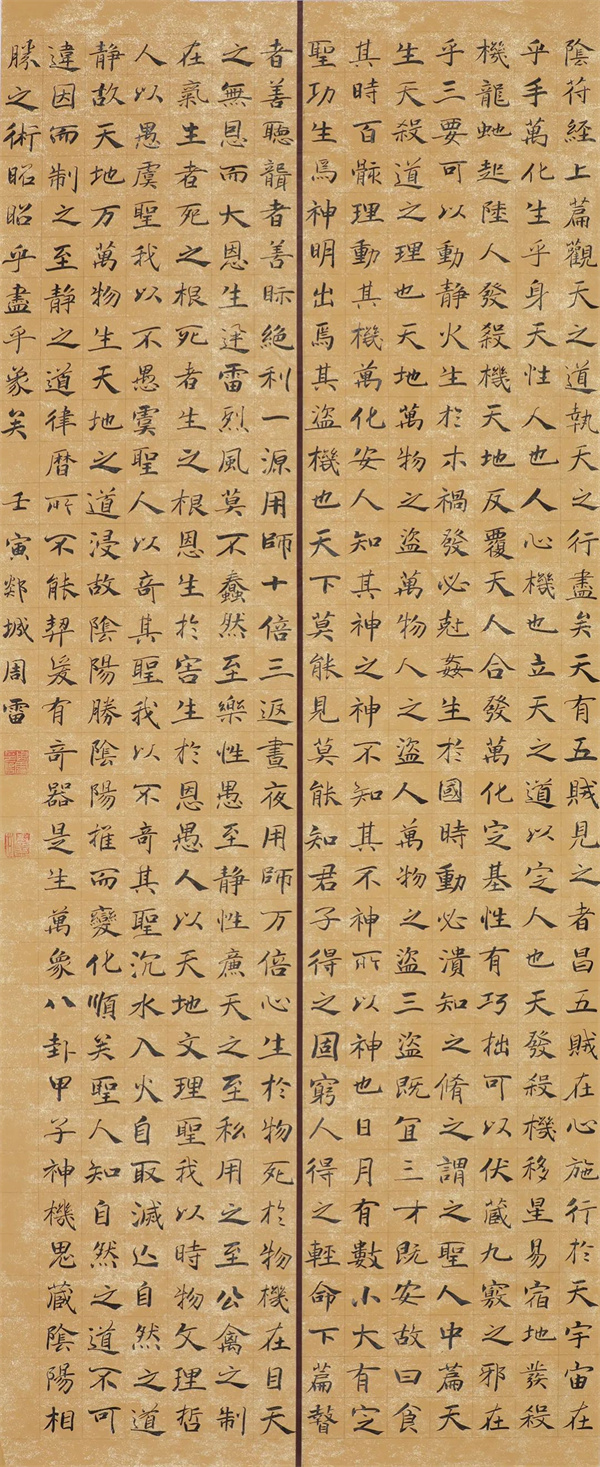 陰符經上篇觀天之道執天之行盡矣天有五賊見之者昌五賊在心施行於天宇宙在
乎手萬化生乎身天性人也人心機也立天之道以定人也天發殺機移星易宿地發殺
機龍虵起陸人發殺機天地反覆天人合發萬化定基性有巧拙可以伏藏九竅之邪在
乎三要可以動静火生於木禍發必尅姦生於國時動必潰知之脩之謂之聖人中篇天
生天殺道之理也天地萬物之盜萬物人之盜人萬物之盜三盜既宜三才既安故曰食
其時百骸理動其機萬化安人知其神之神不知其不神所以神也日月有數小大有定
聖功生焉神明出焉其盜機也天下莫能見莫能知君子得之固窮人得之輕命下篇瞽
者善聽聾者善眎絕利一源用師十倍三返晝夜用師万倍心生於物死於物機在目天
之無恩而大恩生迅雷烈風莫不蠢然至樂性愚至静性廉天之至私用之至公禽之制
在氣生者死之根死者生之根恩生於害生於恩愚人以天地文理聖我以時物文理哲
人以愚虞聖我以不愚虞聖人以奇其聖我以不奇其聖沉水入火自取滅亡自然之道
静故天地万萬物生天地之道浸故陰陽勝陰陽推而變化順矣聖人知自然之道不可
違因而制之至静之道律曆所不能契爰有奇器是生萬象八卦甲子神機鬼藏陰陽相
勝之術昭昭乎盡乎象矣 壬寅郯城周雷